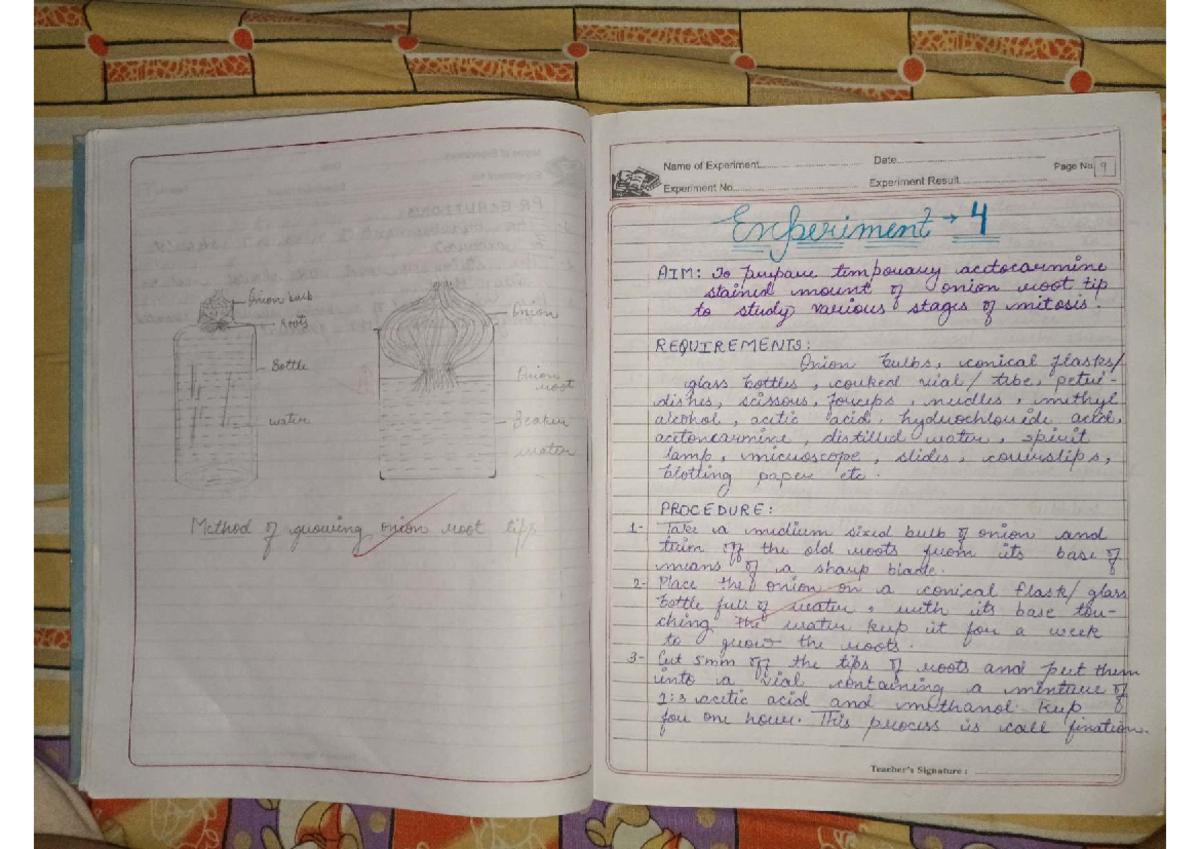 Onion bulb
Roots
Bottle
water
Onion
Onion root
Beaker
water
Method of growing onion root tips
Name of Experiment
Date
Page No. 9
Experiment No.
Experiment Result
Experiment → 4
AIM: To prepare temporary acetocarmine
stained mount of onion root tip
to study various stages of mitosis.
REQUIREMENTS:
Onion bulbs, conical flasks/
glass bottles, corked vial/ tube, petri-
dishes, scissors, forceps, needles, methyl
alcohol, acetic acid, hydrochloride acid,
acetoncarmine, distilled water, spirit
lamp, microscope, slides, coverslips,
blotting paper etc.
PROCEDURE:
1- Take a midium sized bulb of onion and
trim off the old roots from its base of
means of a sharp blade.
2- Place the onion on a conical flask/ glass
bottle full of water, with its base tou-
ching the water keep it for a week
to grow the roots.
3- Cut 5mm off the tips of roots and put them
into a vial containing a mixture of
1:3 acetic acid and methanol. Keep
for one hour. This process is call fixation.
Teacher's Signature :